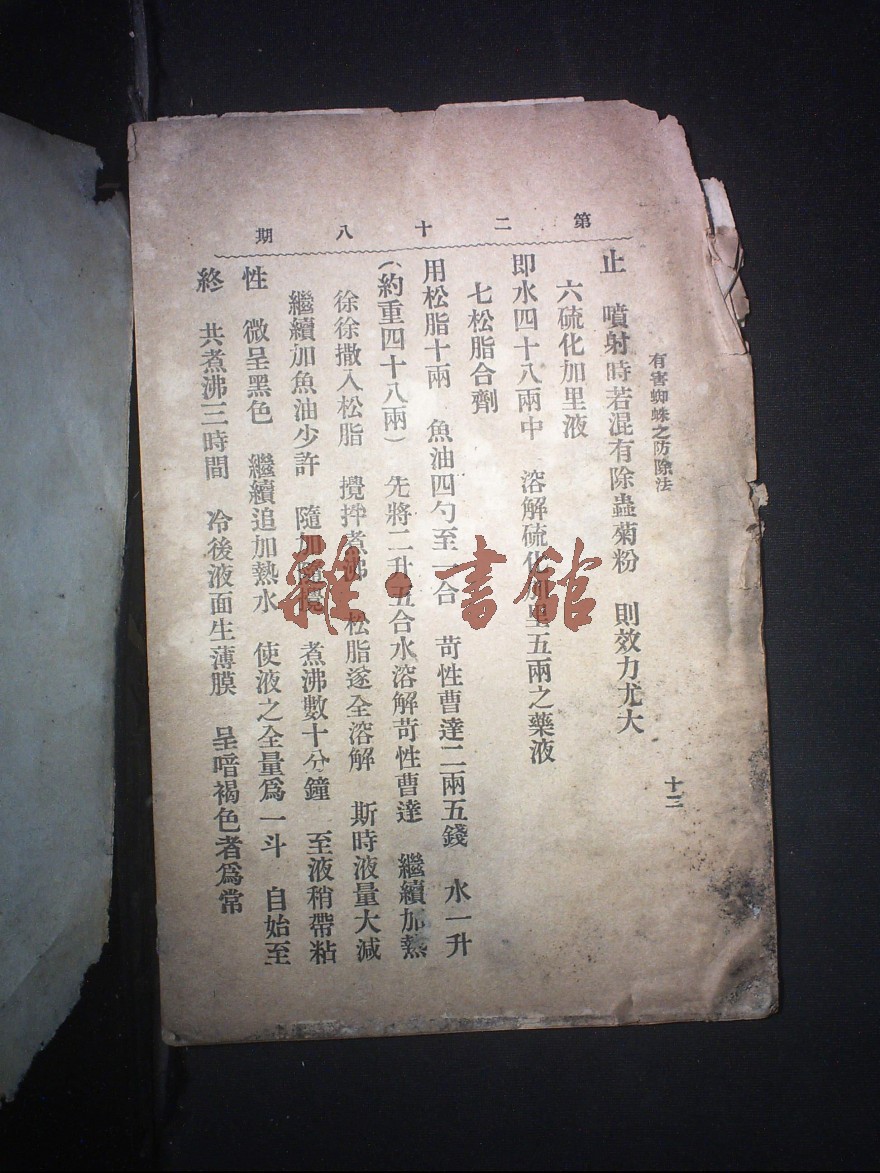 第二十八期
有害蜘蛛之防除法
十三
止　噴射時若混有除蟲菊粉　則效力尤大
六硫化加里液
即水四十八兩中　溶解硫化加里五兩之藥液
七松脂合劑
用松脂十兩　魚油四勺至一合　苛性曹達二兩五錢　水一升
（約重四十八兩）　先將二升五合水溶解苛性曹達　繼續加熱
徐徐撒入松脂　攪拌煮沸　松脂遂全溶解　斯時液量大減
繼續加魚油少許　隨加隨攪　煮沸數十分鐘　至液稍帶粘
性　微呈黑色　繼續追加熱水　使液之全量爲一斗　自始至
終　共煮沸三時間　冷後液面生薄膜　呈暗褐色者爲常
雜·書館